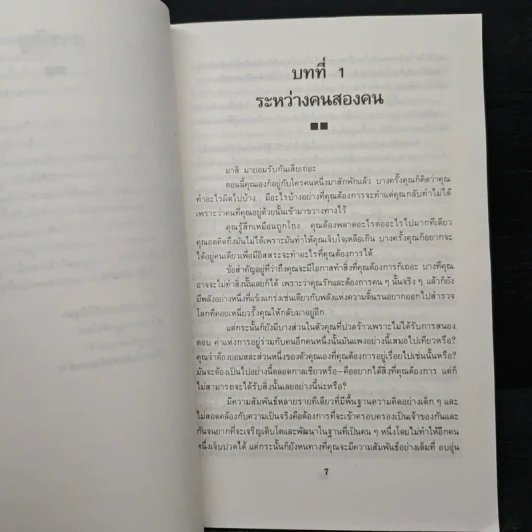 บทที่ 1
ระหว่างคนสองคน
มาสิ มายอมรับกันเสียเถอะ
ตอนนี้คุณเองก็อยู่กับใครคนหนึ่งมาสักพักแล้ว บางครั้งคุณก็คิดว่าคุณ
ทำอะไรผิดไปบ้าง มีอะไรบางอย่างที่คุณต้องการจะทำแต่คุณกลับทำไม่ได้
เพราะว่าคนที่คุณอยู่ด้วยนั้นเข้ามาขวางทางไว้
คุณรู้สึกเหมือนถูกโกง คุณต้องพลาดอะไรต่ออะไรไปมากทีเดียว
คุณอดคิดถึงมันไม่ได้เพราะมันทำให้คุณเจ็บใจเหลือเกิน บางครั้งคุณก็อยากจะ
ได้อยู่คนเดียวเพื่อมีอิสสระจะทำอะไรที่คุณต้องการได้
ข้อสำคัญอยู่ที่ว่าถึงคุณจะมีโอกาสทำสิ่งที่คุณต้องการก็เถอะ บางทีคุณ
อาจจะไม่ทำสิ่งนั้นเลยก็ได้ เพราะว่าคุณรักและต้องการคน ๆ นั้นจริง ๆ แล้วก็ยัง
มีพลังอย่างหนึ่งที่แข็งแกร่งเช่นเดียวกับพลังแห่งความดิ้นรนอยากออกไปสำรวจ
โลกที่คอยเหนี่ยวรั้งคุณให้กลับมาอยู่อีก
แต่กระนั้นก็ยังมีบางส่วนในตัวคุณที่ปวดร้าวเพราะไม่ได้รับการสนอง
ตอบ ค่าแห่งการอยู่ร่วมกับคนอีกคนหนึ่งนั้นมันแพงอย่างนี้เสมอไปเทียวหรือ?
คุณจำต้องยอมสละส่วนหนึ่งของตัวคุณเองที่คุณต้องการอยู่เรื่อยไปเช่นนั้นหรือ?
มันจะต้องเป็นไปอย่างนี้ตลอดกาลเชียวหรือ–คืออยากได้สิ่งที่คุณต้องการ แต่ก็
ไม่สามารถจะได้รับสิ่งนั้นเลยอย่างนี้น่ะหรือ?
มีความสัมพันธ์หลายรายทีเดียวที่มีพื้นฐานความคิดอย่างเด็ก ๆ และ
ไม่สอดคล้องกับความเป็นจริงคือต้องการที่จะเข้าครอบครองเป็นเจ้าของกันและ
กันจนยากที่จะเจริญเติบโตและพัฒนาในฐานที่เป็นคน ๆ หนึ่งโดยไม่ทำให้อีกคน
หนึ่งเจ็บปวดได้ แต่กระนั้นก็ยังหนทางที่คุณจะมีความสัมพันธ์อย่างเต็มที่ อบอุ่น
7